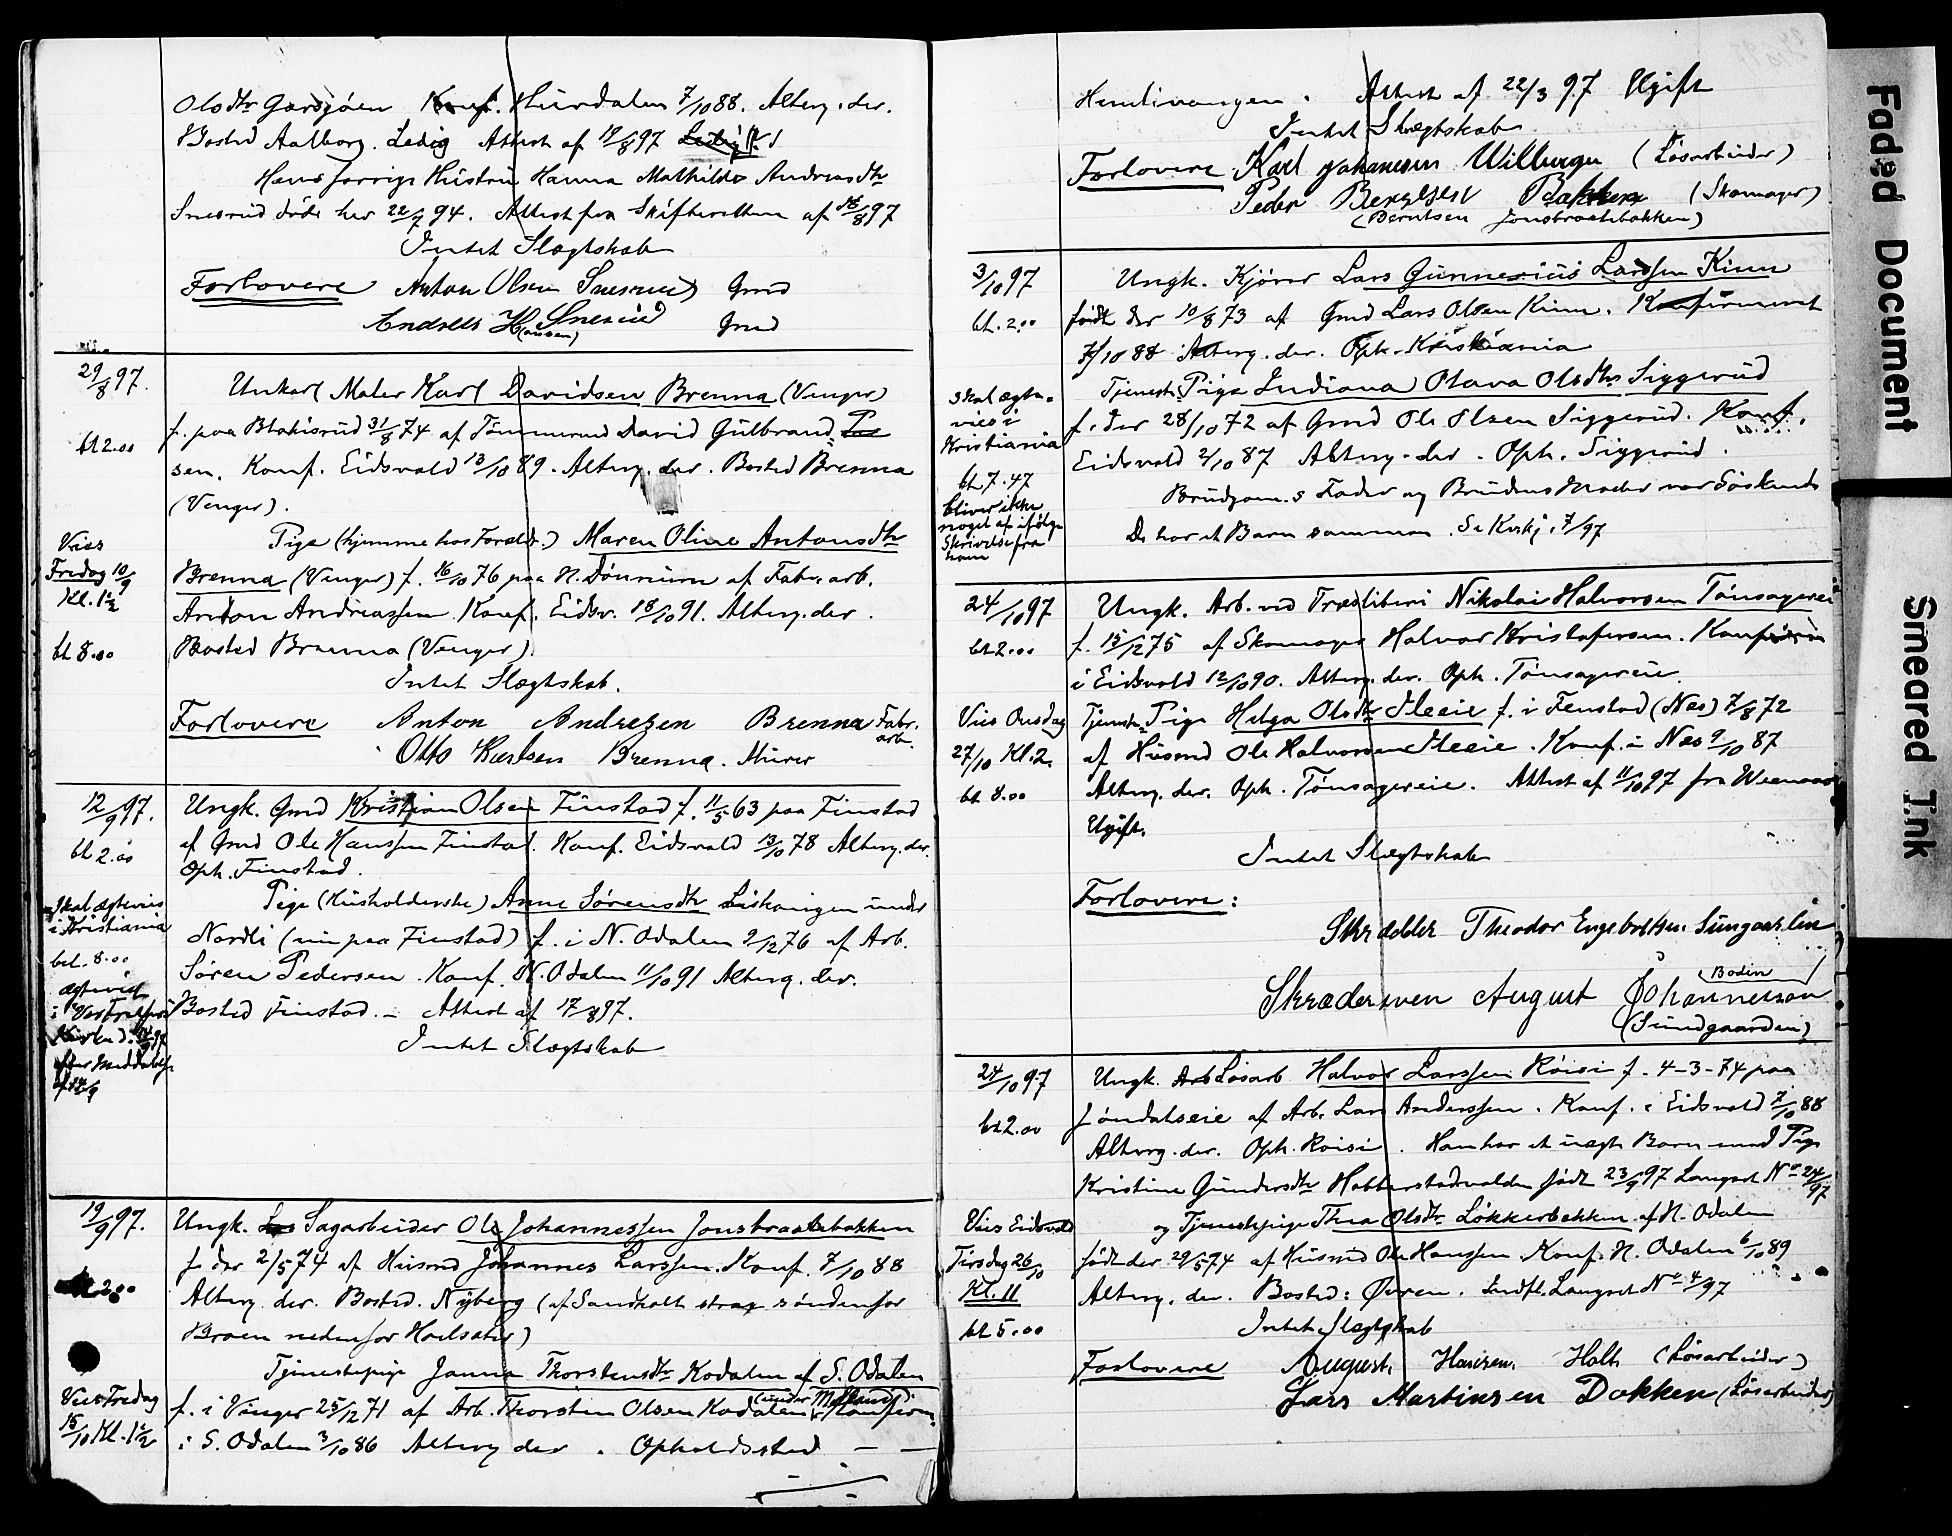 Olsdtr Garsjøen Konf. Hurdalen 7/10 88. Alterg. der.
Bosted Aalborg. Ledig Attest af 19/8 97
Hans forrige Hustru Hanna Mathilde Andreasdtr
Snesrud døde her 22/7 94. Attest fra Skifteretten af 18/8 97
Intet Slægtskab
Forlovere Anton Olsen Snesrud Grmd
Andreas H Snesrud Grmd
(ansen)
29/8 97.
bt 2.00
Vies
Fredag 10/9
Kl. 1 1/2
bt 8.00
Unkarl Maler Karl Davidsen Brenna (Venger)
f. paa Blakisrud 31/8 74 af Tømmermd David Gulbrand-
sen. Konf. Eidsvold 13/10 89. Alterg. der. Bosted Brenna
(Venger).
Pige (hjemme hos Foræld.) Maren Oline Antonsdtr
Brenna (Venger) f. 16/10 76 paa N. Dønnum af Fabr. arb.
Anton Andreassen Konf. Eidsv. 18/10 91. Alterg. der.
Bosted Brenna (Venger).
Intet Slægtskab.
Forlovere Anton Andresen Brenna Fabr. arb.
Otto Karlsen Brenna. Murer
12/9 97.
bt 2.00
Skal ægtevies
i Kristiania
bet. 8.00
ægteviet
i Vor Frelsers
Kirke d. 14/9 97
efter Meddelelse
af 14/9
Ungk. Grmd Kristian Olsen Finstad f. 11/5 63 paa Finstad
af Grmd Ole Hanssen Finstad. Konf. Eidsvold 13/10 78 Alterg. der.
Oph. Finstad.
Pige (Husholderske) Anne Sørensdtr Liskaugen under
Nordli (nu paa Finstad) f. i N. Odalen 9/12 76 af Arb.
Søren Pedersen. Konf. N. Odalen 11/10 91 Alterg. der.
Bosted Finstad. – Attest af 17/8 97.
Intet Slægtskab
19/9 97.
bt 2.00
Vies Fredag
15/10 Kl. 1 1/2
Ungk. Sagarbeider Ole Johannessen Jonsbraatebakken
f. der 2/5 74 af Husmd Johannes Larssen. Konf. 7/10 88
Alterg. der. Bosted. Nyberg (af Sandholt strax søndenfor
Broen nedenfor Hoelsæter)
Tjenestepige Janna Thorstensdtr Kodalen af S. Odalen
f. i Vinger 25/12 71 af Arb. Thorsten Olsen Kodalen (under Mo) Konfirm.
i S. Odalen 3/10 86 Alterg der . Opholdssted — —
Hemlivangen. Attest af 22/3 97 Ugift
Intet Slægtskab
Forlovere Karl Johansen Wilberger (Løsarbeider)
Peder Berntsen Bakken (Skomager)
(Berntsen Jonsbraatebakken)
3/10 97
bt. 2.00
skal ægte-
vies i
Kristiania
bt 7.47
bliver ikke
noget af ifølge
Skrivelse fra
ham
Ungk. Kjører Lars Gunnerius Larssen Kinn
født der 10/8 73 af Grmd Lars Olsen Kinn. Konfirmeret
7/10 88 Alterg. der. Oph. Kristiania
Tjeneste Pige Indiana Olava Olsdtr Siggerud
f. der 28/10 72 af Grmd Ole Olsen Siggerud. Konf.
Eidsvold 2/10 87 Alterg. der. Oph. Siggerud.
Brudgom.s Fader og Brudens Moder var Søskende
De har et Barn sammen. Se Kirkj. 7/97
24/10 97
bt 2.00
Vies Onsdag
27/10 Kl. 2.
bt 8.00
Ungk. Arb. ved Træsliberi Nikolai Halvorsen Tønsagereie
f. 15/12 75 af Skomager Halvor Kristofersen. Konfirm
i Eidsvold 12/10 90. Alterg. der. Oph. Tønsagereie.
Tjenest. Pige Helga Olsdtr f. i Fenstad (Nes) 7/8 72
af Husmd Ole Halvorsen. Konf. i Næs 9/10 87
Alterg. der. Oph. Tønsagereie. Attest af 11/10 97 fra
Ugift.
Intet Slægtskab
Forlovere:
Skrædder Theodor Engebretsen Sundgaarden
Skræddersven August Johannesson
Bodin
(Sundgaarden)
24/10 97
bt 2.00
Vies Eidsvold
Tirsdag 26/10
Kl. 11
bt 5.00
Ungk. Løsarb Halvor Larssen Roisi f. 4-3-74 paa
Jøndalseie af Arb. Lars Anderssen. Konf. i Eidsvold 7/10 88
Alterg. der. Oph. Roisi. Han har et uægte Barn med Pige
Kristine Gundersdtr Habberstadvolden født 23/9 97 Langset No 24/97
og Tjenestepige Thea Olsdtr Løkkerbakken af N. Odalen
født der 29/5 74 af Husmd Ole Hanssen. Konf. N. Odalen 6/10 89
Alterg. der. Bosted: Øvren. Indfl. Langset No 4/97
Intet Slægtskab
Forlovere August Hansen Holt (Løsarbeider)
Lars Martinsen Dokken (Løsarbeider)
Faded Document
Smeared Ink